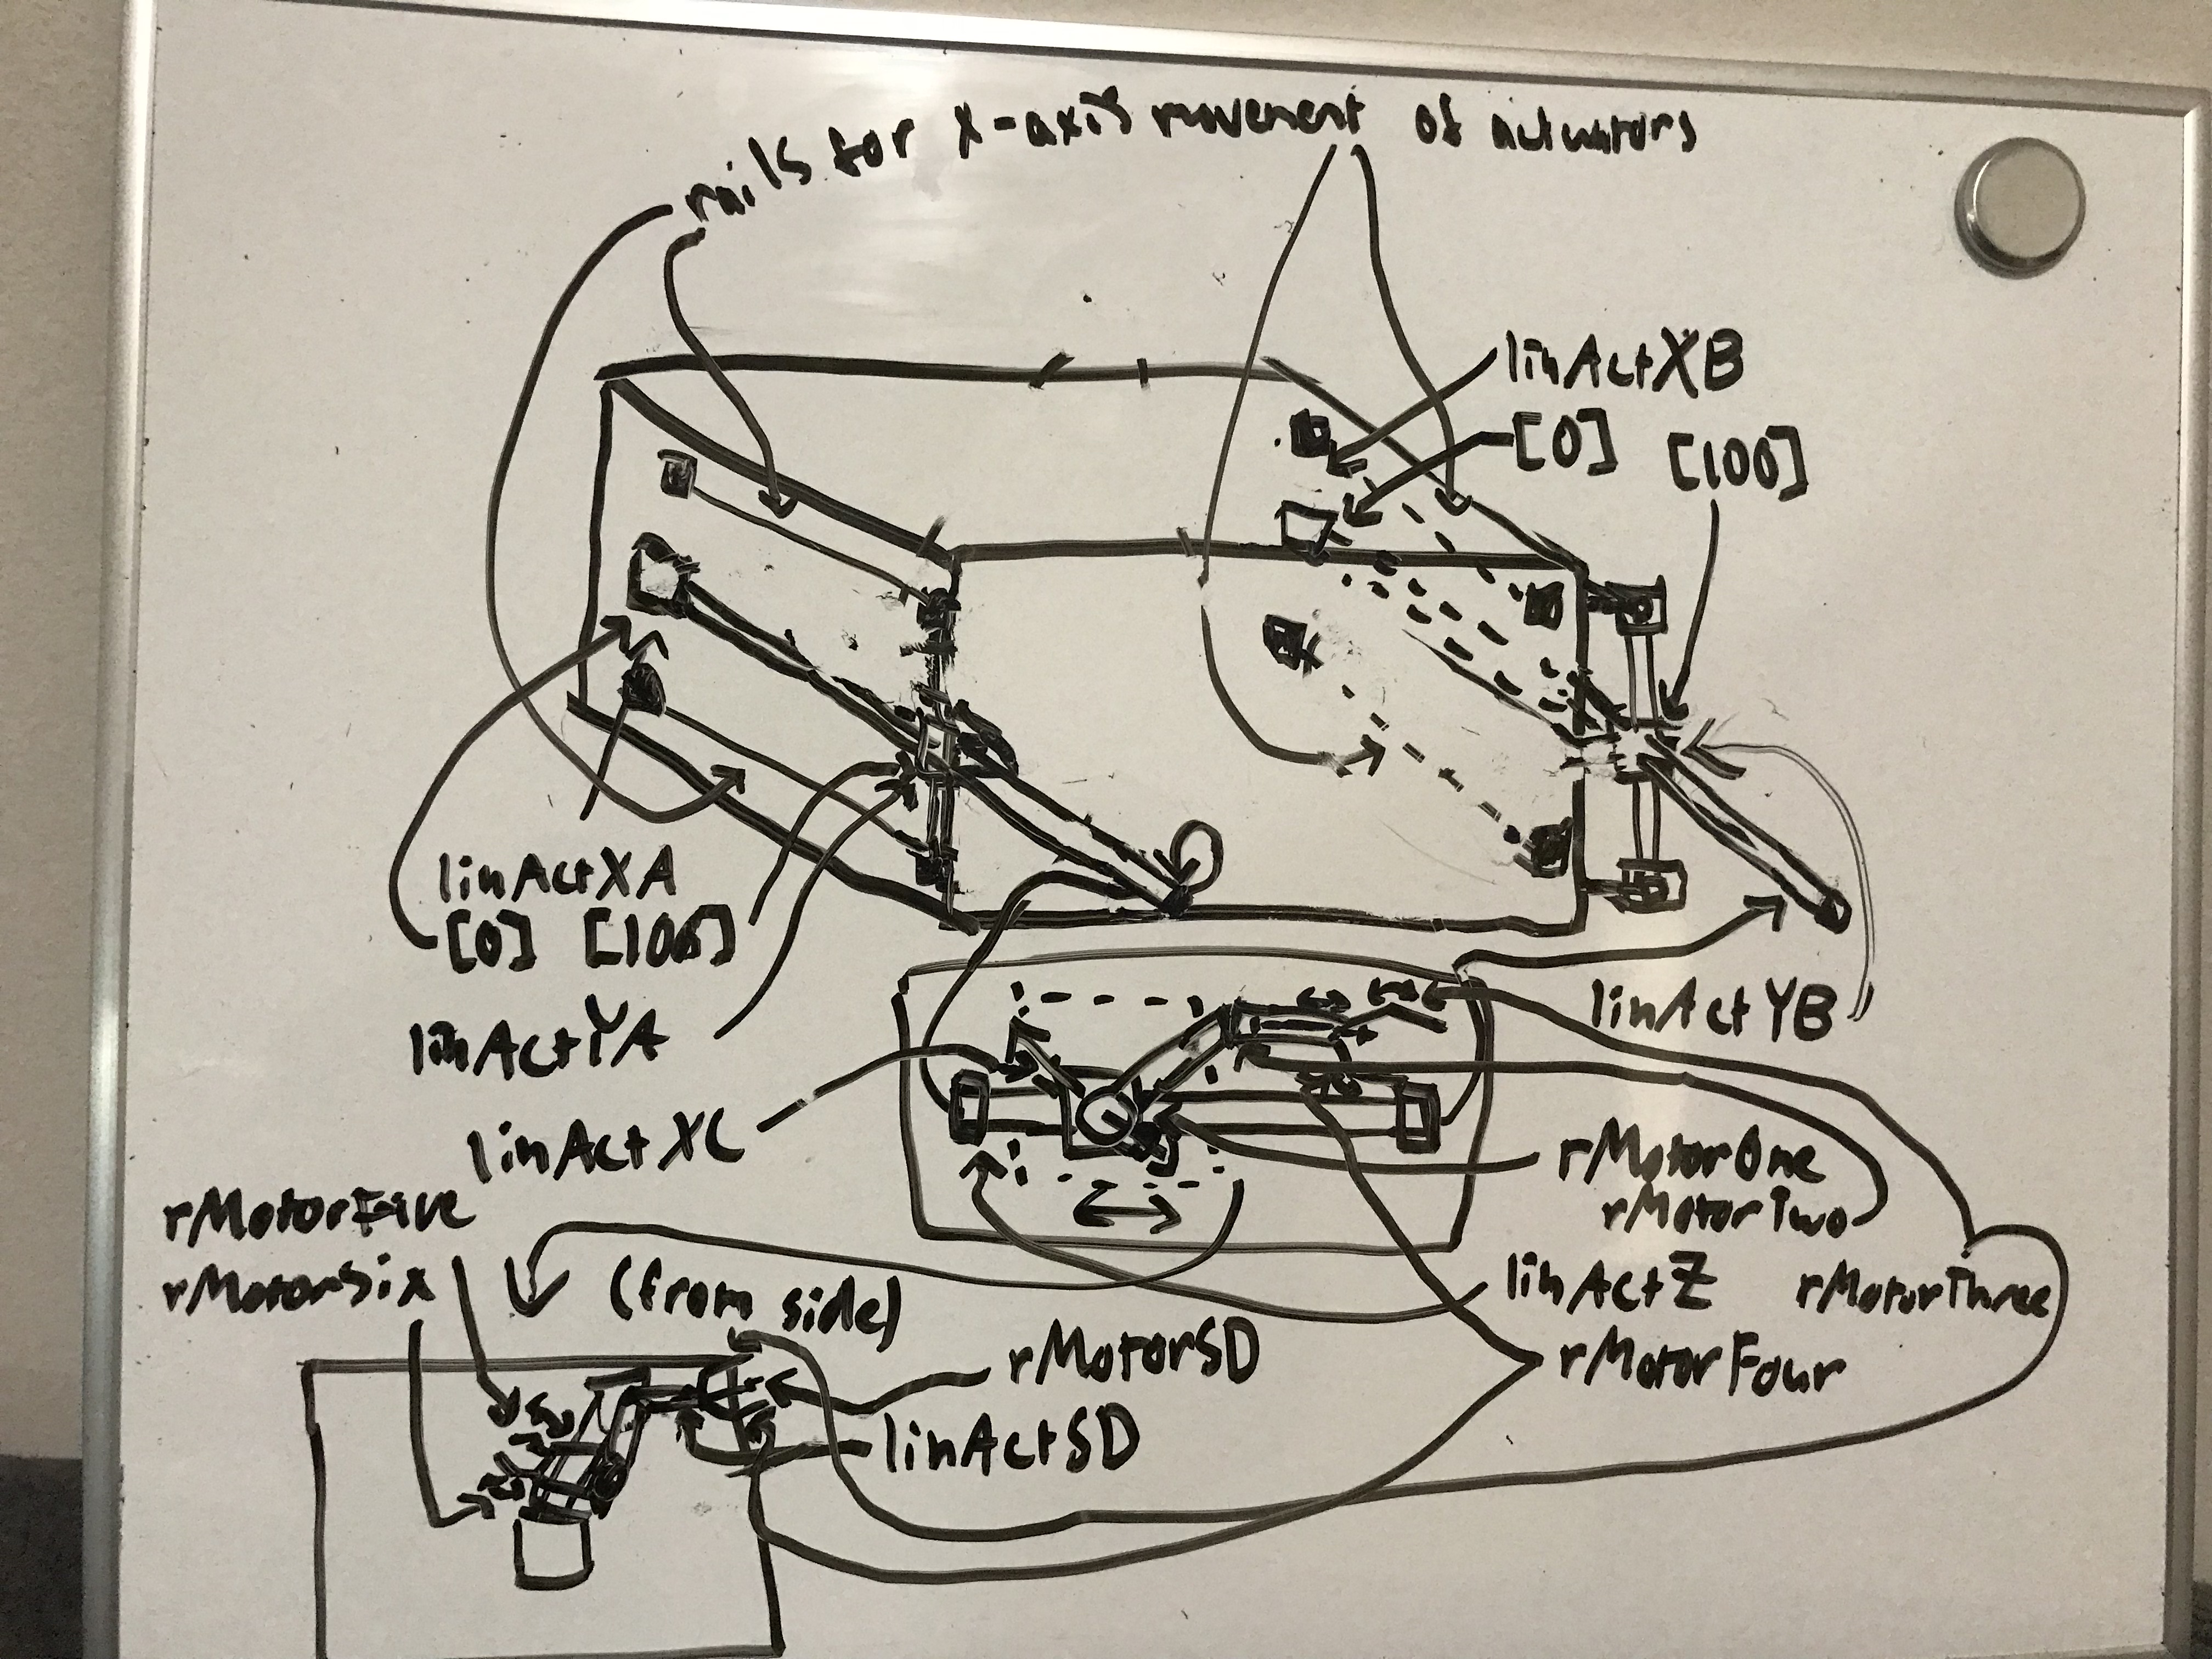 rails for x-axis movement of actuators
linActXB
[0] [100]
linActXA
[0] [100]
linActYA
linActYB
linActXC
rMotorOne
rMotorTwo
rMotorFive
rMotorSix
(from side)
linActZ
rMotorThree
rMotorSD
rMotorFour
linActSD